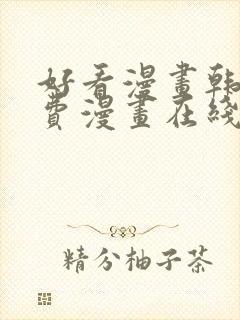 好看漫畫韩
費漫畫在綫
精分柚子茶